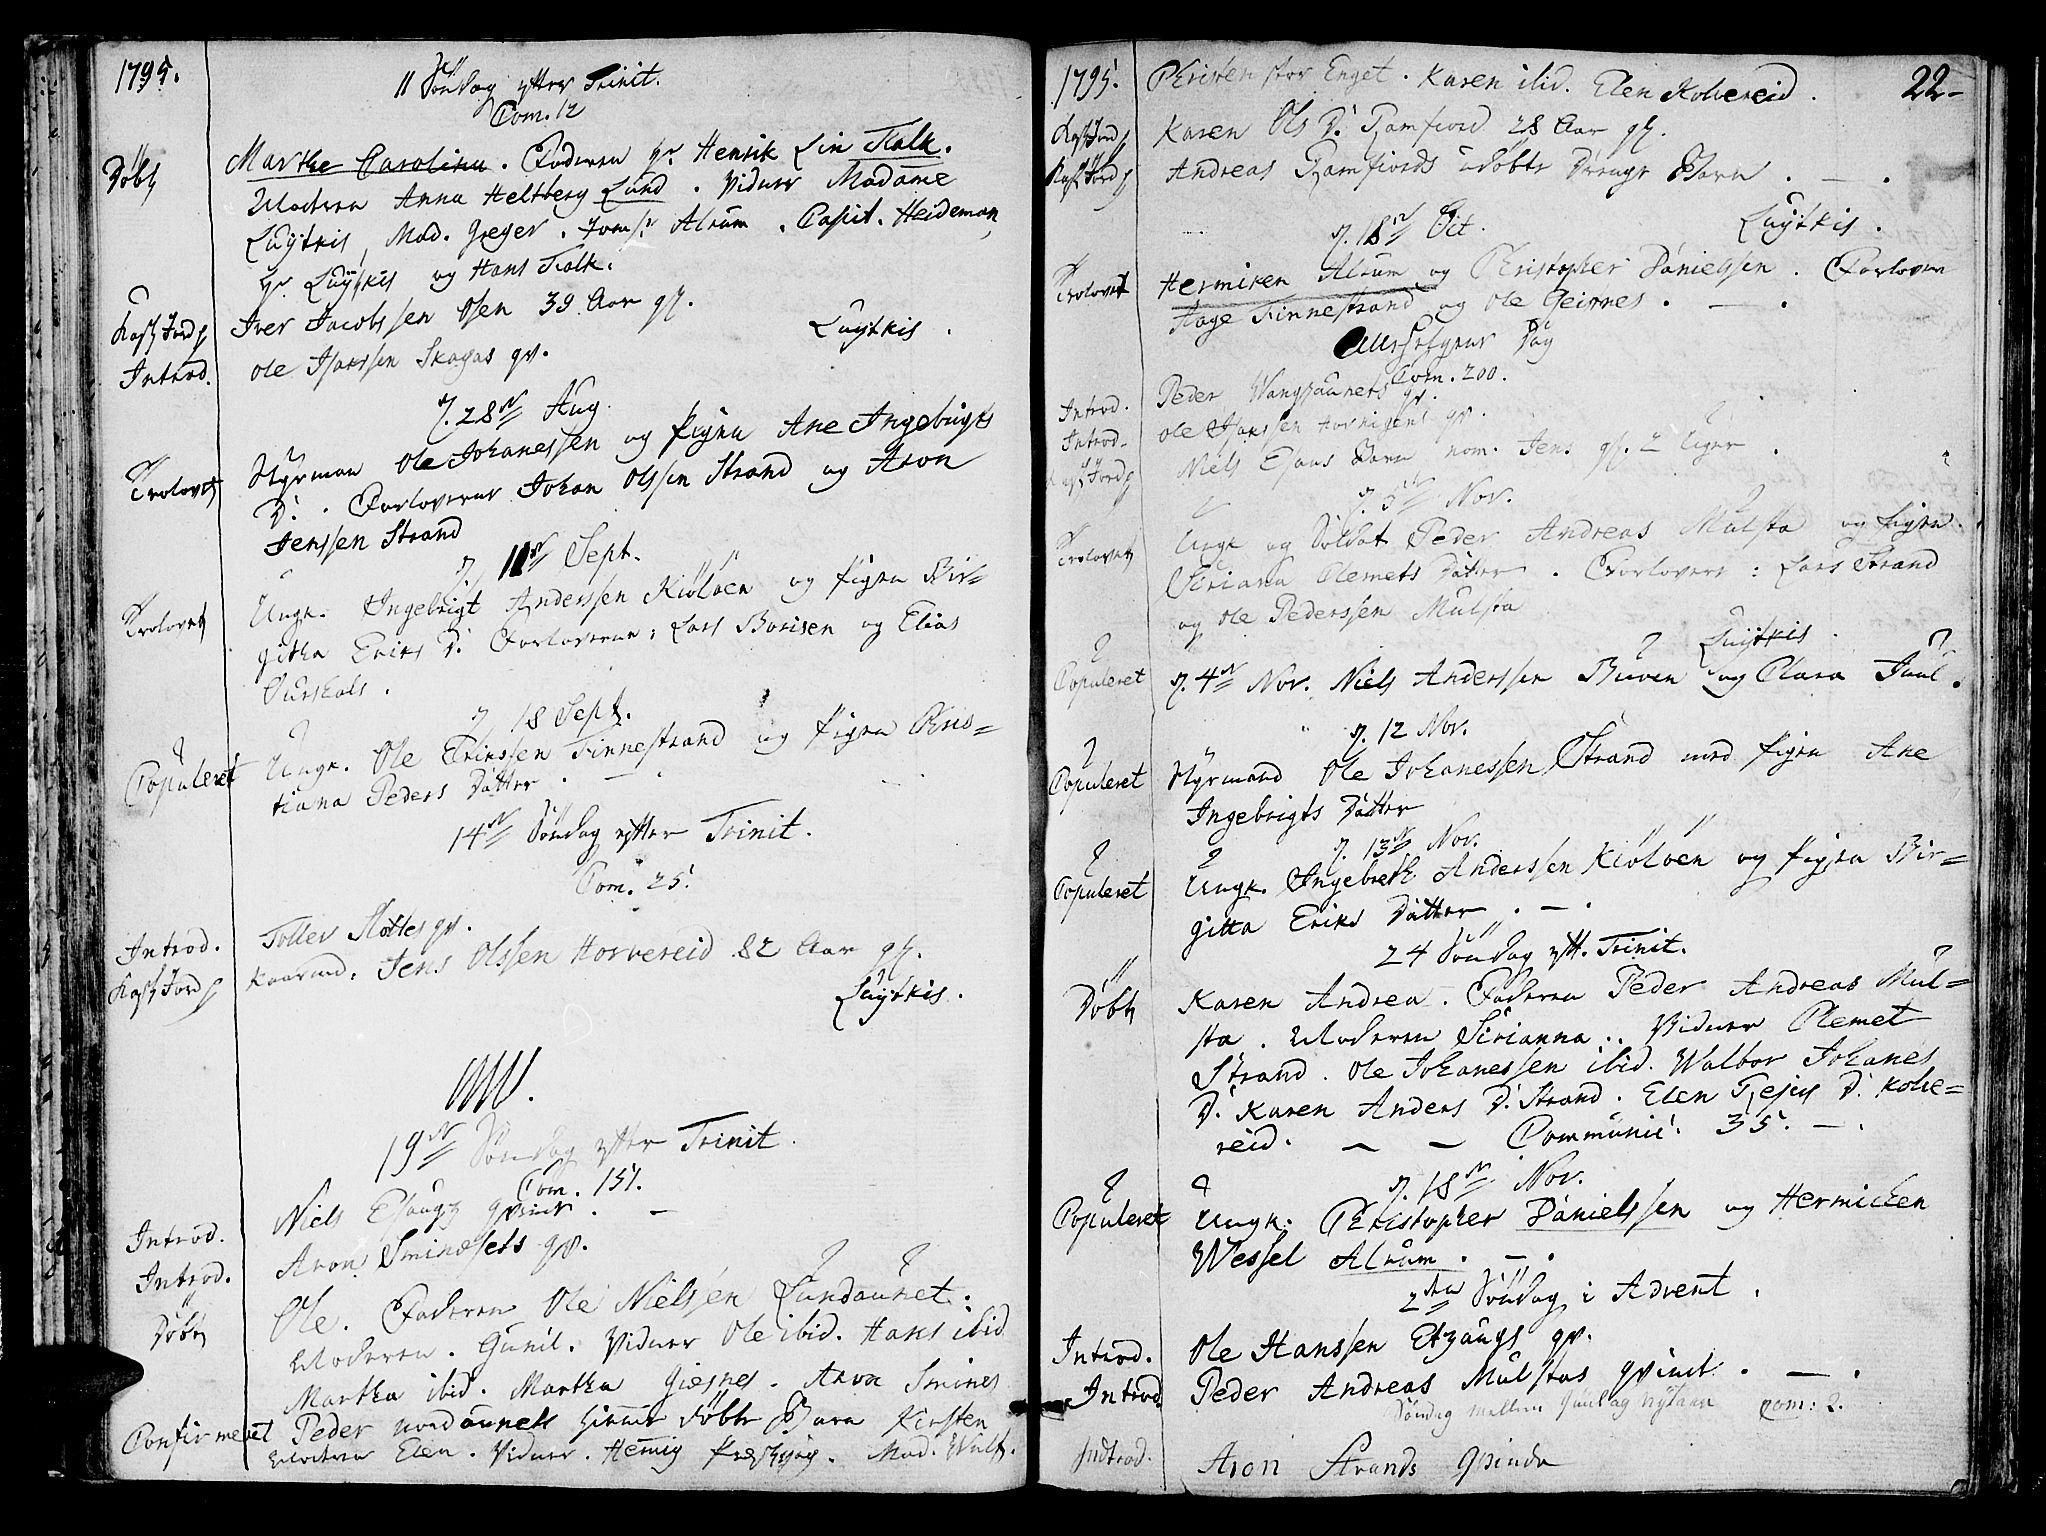 1795.
11 Söndag efter Trinit.
Com. 12
Döbt Marthe Carolina. Faderen Hr. Henrik Lin Falk.
Moderen Anna Heltberg Lund. Vidner Madame
Luytkis, Mad. Greger. Jomfr. Alrum. Capit. Heideman,
Hr. Luytkis og Hans Falk.
Kast Jord p Iver Jacobssen Osen 39 Aar gl.
Luytkis.
Introd. Ole Isakssen Skagas qv.
d. 28de Aug.
Trolovet Styrman Ole Johanessen og Pigen Ane Ingebrigts
D. Forloverne Johan Olssen Strand og Aron
Jenssen Strand
d. 11te Sept.
Trolovet Ungk. Ingebrigt Anderssen Kiölöen og Pigen Bir=
githa Eriks D. Forloverne: Lars Borisen og Elias
Surskals.
d. 18 Sept.
Copuleret Ungk. Ole Erikssen Finnestrand og Pigen Chris=
tiana Peders Datter. —
14de Söndag efter Trinit.
Com. 25.
Introd. Toller Slottes qv.
Kast Jord p Jens Olssen Horvereid 82 Aar gl.
Luytkis.
19de Söndag efter Trinit.
Com. 151.
Introd. Niels Esaugs Qvinde. —
Introd. Aron Sminesets qv.
Döbt Ole. Faderen Ole Nielsen Lundaunet.
Moderen. Gunil. Vidner Ole ibid. Hans ibid
Martha ibid. Martha Giesnes. Aron Smines
Confirmeret Peder Nordaunets hjemme döbte Barn Kirsten
Moderen Elen. Vidner. Hemig. Mad. Wulf.
1795. Christen stor Enget. Karen ibid. Elen Kolvereid. 22
Kast Jord p Karen Ols D. Ramfiord 28 Aar gl.
Kast Jord p Andreas Ramfiords udöbte Drenge Barn. —
Luytkis.
d. 18de Oct.
Trolovet Hermiken Alrum og Christopher Danielssen. Forlover
Aage Finnestrand og Ole Geirnes. —
Allehelgens Dag
Com. 200.
Introd. Peder Wangsaunets qv.
Introd. Ole Isakssen qv.
Kast Jord p Niels Esaus Barn nom. Jens gl. 2 Uger.
d. 3de Nov.
Trolovet Ungk og Soldat Peder Andreas Mulsta og Pigen
Siriana Clemets Datter. Forlovere: Lars Strand
og Ole Pederssen Mulsta
Luytkis.
Copuleret d. 4de Nov. Niels Anderssen Buven og Clara Juul.
d. 12 Nov.
Copuleret Styrmand Ole Johanessen Strand med Pigen Ane
Ingebrigts Datter
d. 13de Nov.
Copuleret Ungk. Ingebreth Anderssen Kiölöen og Pigen Bir=
gitta Eriks Datter. —
24 Söndag eft. Trinit.
Döbt Karen Andrea. Faderen Peder Andreas Mul=
sta. Moderen Sirianna. Vidner Clemet
Strand. Ole Johanessen ibid. Walbor Johanes
D. Karen Anders D. Strand. Elen D. Kolve=
reid. — — Communic. 35. —
d. 18de Nov.
Copuleret Ungk. Christopher Danielssen og Hermichen
Wessel Alrum. —
2den Söndag i Advent.
Introd. Ole Hanssen Etzaugs qv.
Introd Peder Andreas Mulstas Qvinde. —
Söndag mellem Juul og Nytaar com: 2.
Indtrod. Aron Strands Qvinde